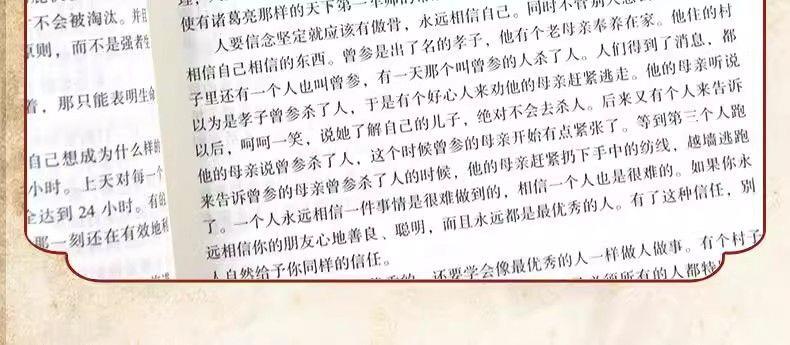 不会被淘汰。并且
原则，而不是强者生
着，那只能表明生命
自己想成为什么样的
小时。上天对每一个
全达到 24 小时。有的
那一刻还在有效地利
使有诸葛亮那样的天下第一军师的
人要信念坚定就应该有傲骨，永远相信自己。同时不管别人
相信自己相信的东西。曾参是出了名的孝子，他有个老母亲奉养在家。他住的村
子里还有一个人也叫曾参，有一天那个叫曾参的人杀了人。人们得到了消息，都
以为是孝子曾参杀了人，于是有个好心人来劝他的母亲赶紧逃走。他的母亲听说
以后，呵呵一笑，说她了解自己的儿子，绝对不会去杀人。后来又有个人来告诉
他的母亲说曾参杀了人，这个时候曾参的母亲开始有点紧张了。等到第三个人跑
来告诉曾参的母亲曾参杀了人的时候，他的母亲赶紧扔下手中的纺线，越墙逃跑
了。一个人永远相信一件事情是很难做到的，相信一个人也是很难的。如果你永
远相信你的朋友心地善良、聪明，而且永远都是最优秀的人。有了这种信任，别
人自然给予你同样的信任。
还要学会像最优秀的人一样做人做事。有个村子
所有的人都特